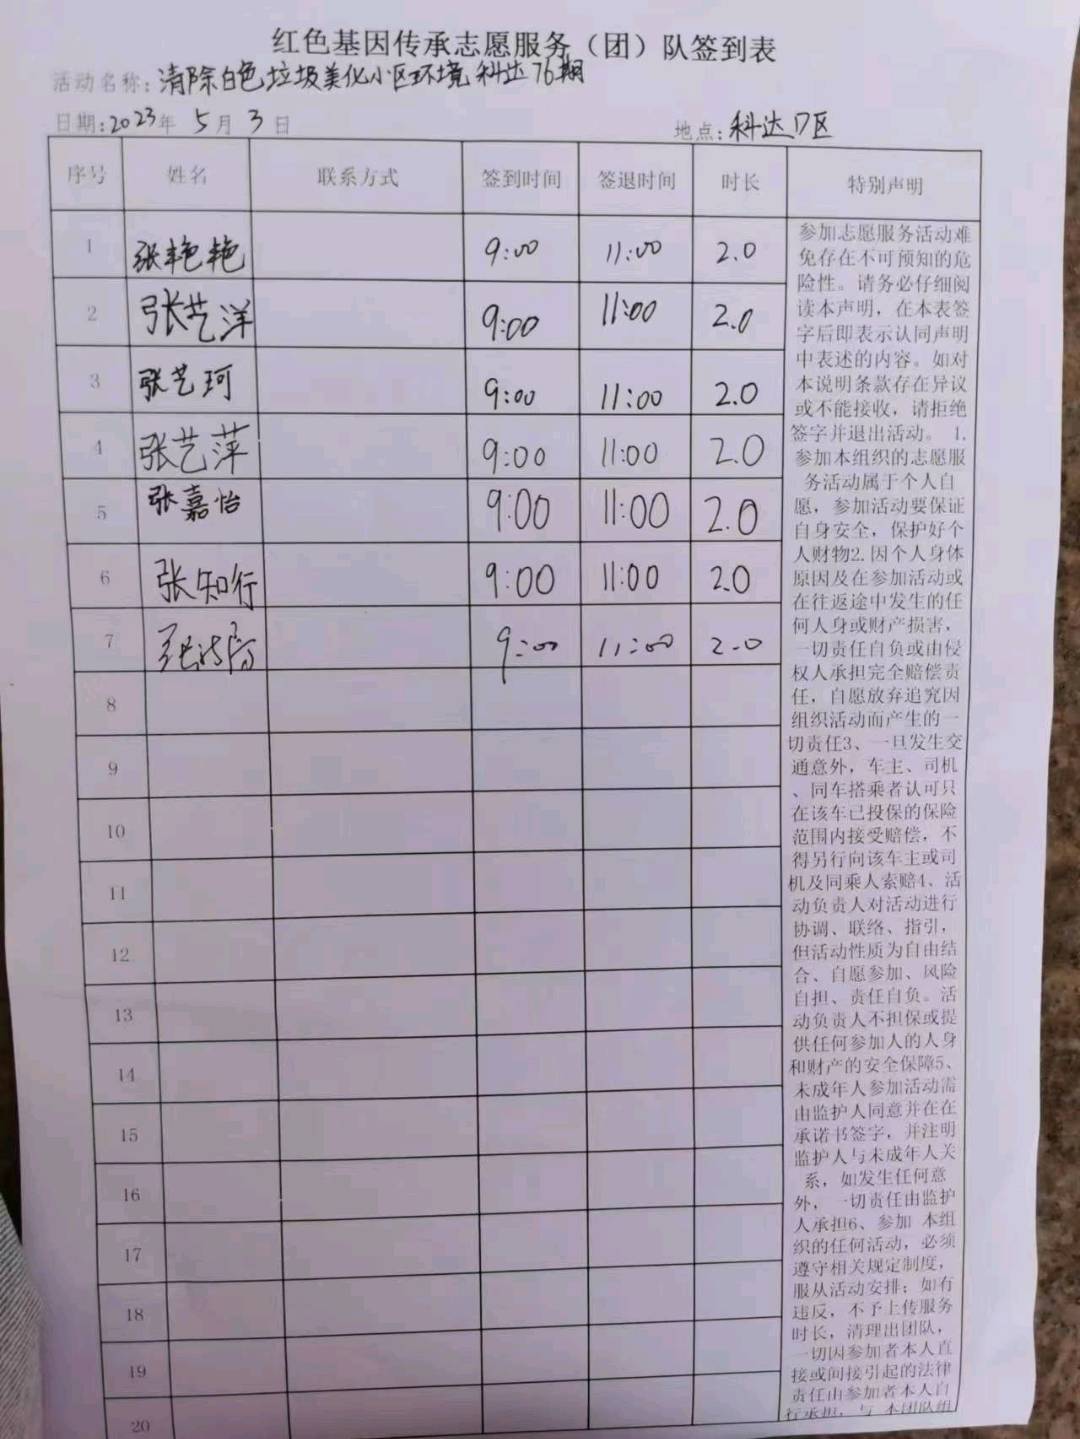 红色基因传承志愿服务（团）队签到表
活动名称：清除白色垃圾美化小区环境科达76期
日期：2023年 5月 3日 地点：科达D区
序号 姓名 联系方式 签到时间 签退时间 时长 特别声明
1 张艳艳 9:00 11:00 2.0
2 张艺洋 9:00 11:00 2.0
3 张艺珂 9:00 11:00 2.0
4 张艺萍 9:00 11:00 2.0
5 张嘉怡 9:00 11:00 2.0
6 张知行 9:00 11:00 2.0
7 9:00 11:00 2.0
8
9
10
11
12
13
14
15
16
17
18
19
20
参加志愿服务活动难
免存在不可预知的危
险性。请务必仔细阅
读本声明，在本表签
字后即表示认同声明
中表述的内容。如对
本说明条款存在异议
或不能接收，请拒绝
签字并退出活动。 1.
参加本组织的志愿服
务活动属于个人自
愿，参加活动要保证
自身安全，保护好个
人财物2.因个人身体
原因及在参加活动或
在往返途中发生的任
何人身或财产损害，
一切责任自负或由侵
权人承担完全赔偿责
任，自愿放弃追究因
组织活动而产生的一
切责任3、一旦发生交
通意外，车主、司机
、同车搭乘者认可只
在该车已投保的保险
范围内接受赔偿，不
得另行向该车主或司
机及同乘人索赔4、活
动负责人对活动进行
协调、联络、指引，
但活动性质为自由结
合、自愿参加、风险
自担、责任自负。活
动负责人不担保或提
供任何参加人的人身
和财产的安全保障5、
未成年人参加活动需
由监护人同意并在在
承诺书签字，并注明
监护人与未成年人关
系，如发生任何意
外，一切责任由监护
人承担6、参加 本组
织的任何活动，必须
遵守相关规定制度，
服从活动安排；如有
违反，不予上传服务
时长，清理出团队，
一切因参加者本人直
接或间接引起的法律
责任由参加者本人自
行承担，与 本团队组